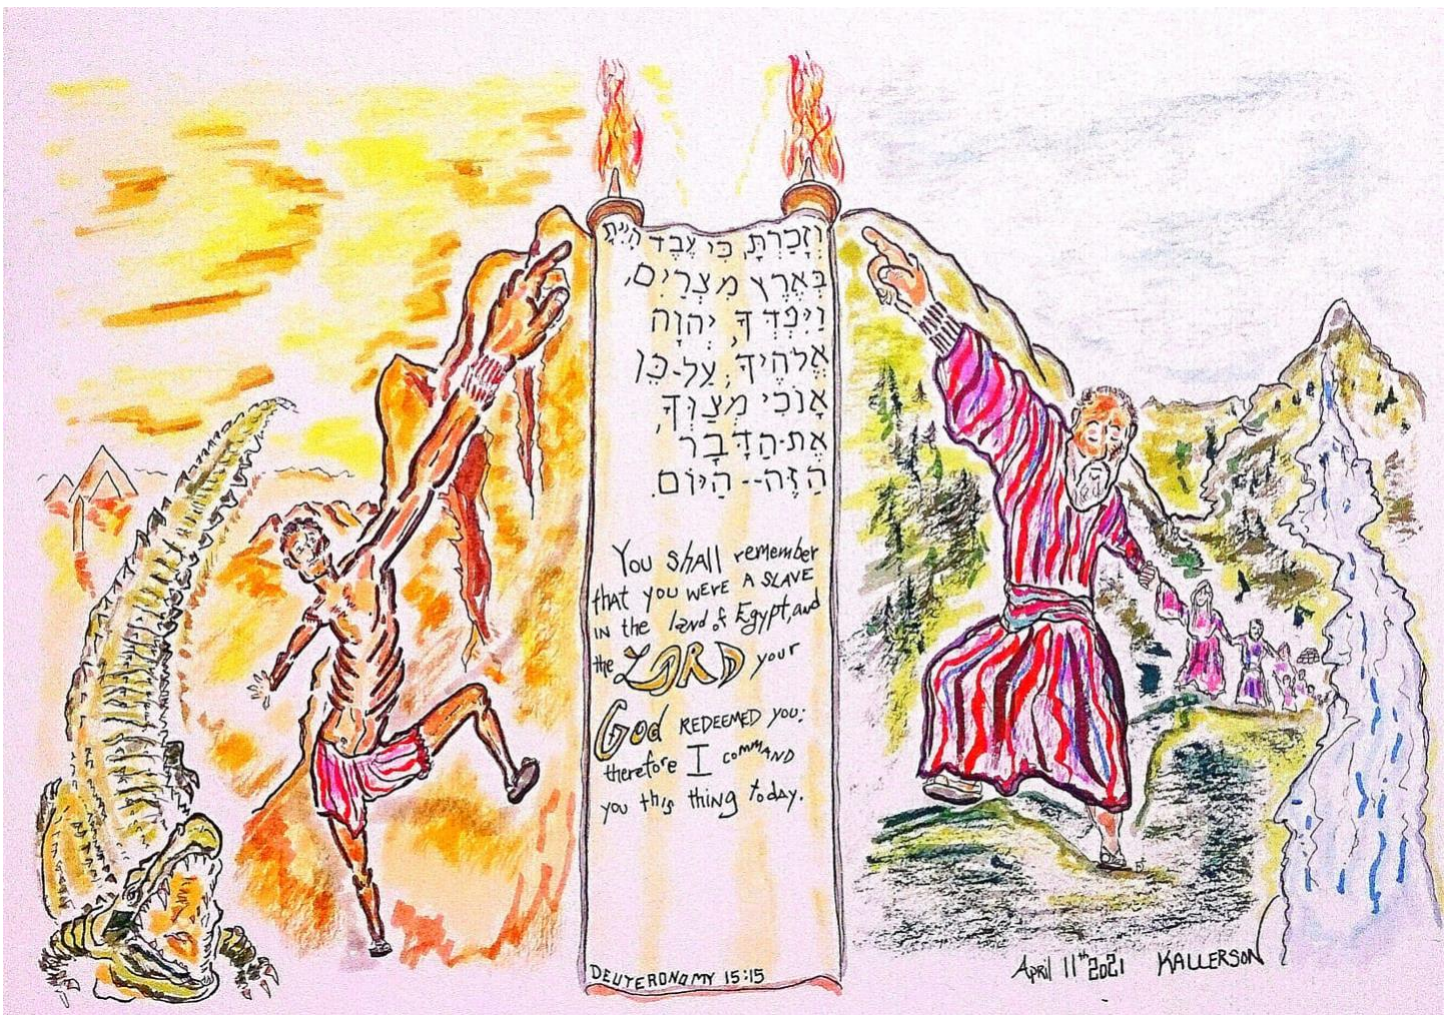 וְזָכַרְתָּ, כִּי עֶבֶד הָיִיתָ
בְּאֶרֶץ מִצְרַיִם,
וַיִּפְדְּךָ, יְהוָה
אֱלֹהֶיךָ; עַל-כֵּן
אָנֹכִי מְצַוְּךָ,
אֶת-הַדָּבָר
הַזֶּה--הַיּוֹם.
You shall remember
that you were A SLAVE
IN the land of Egypt, and
the LORD your
God REDEEMED you:
therefore I COMMAND
you this thing today.
DEUTERONOMY 15:15
April 11th 2021 KALLERSON